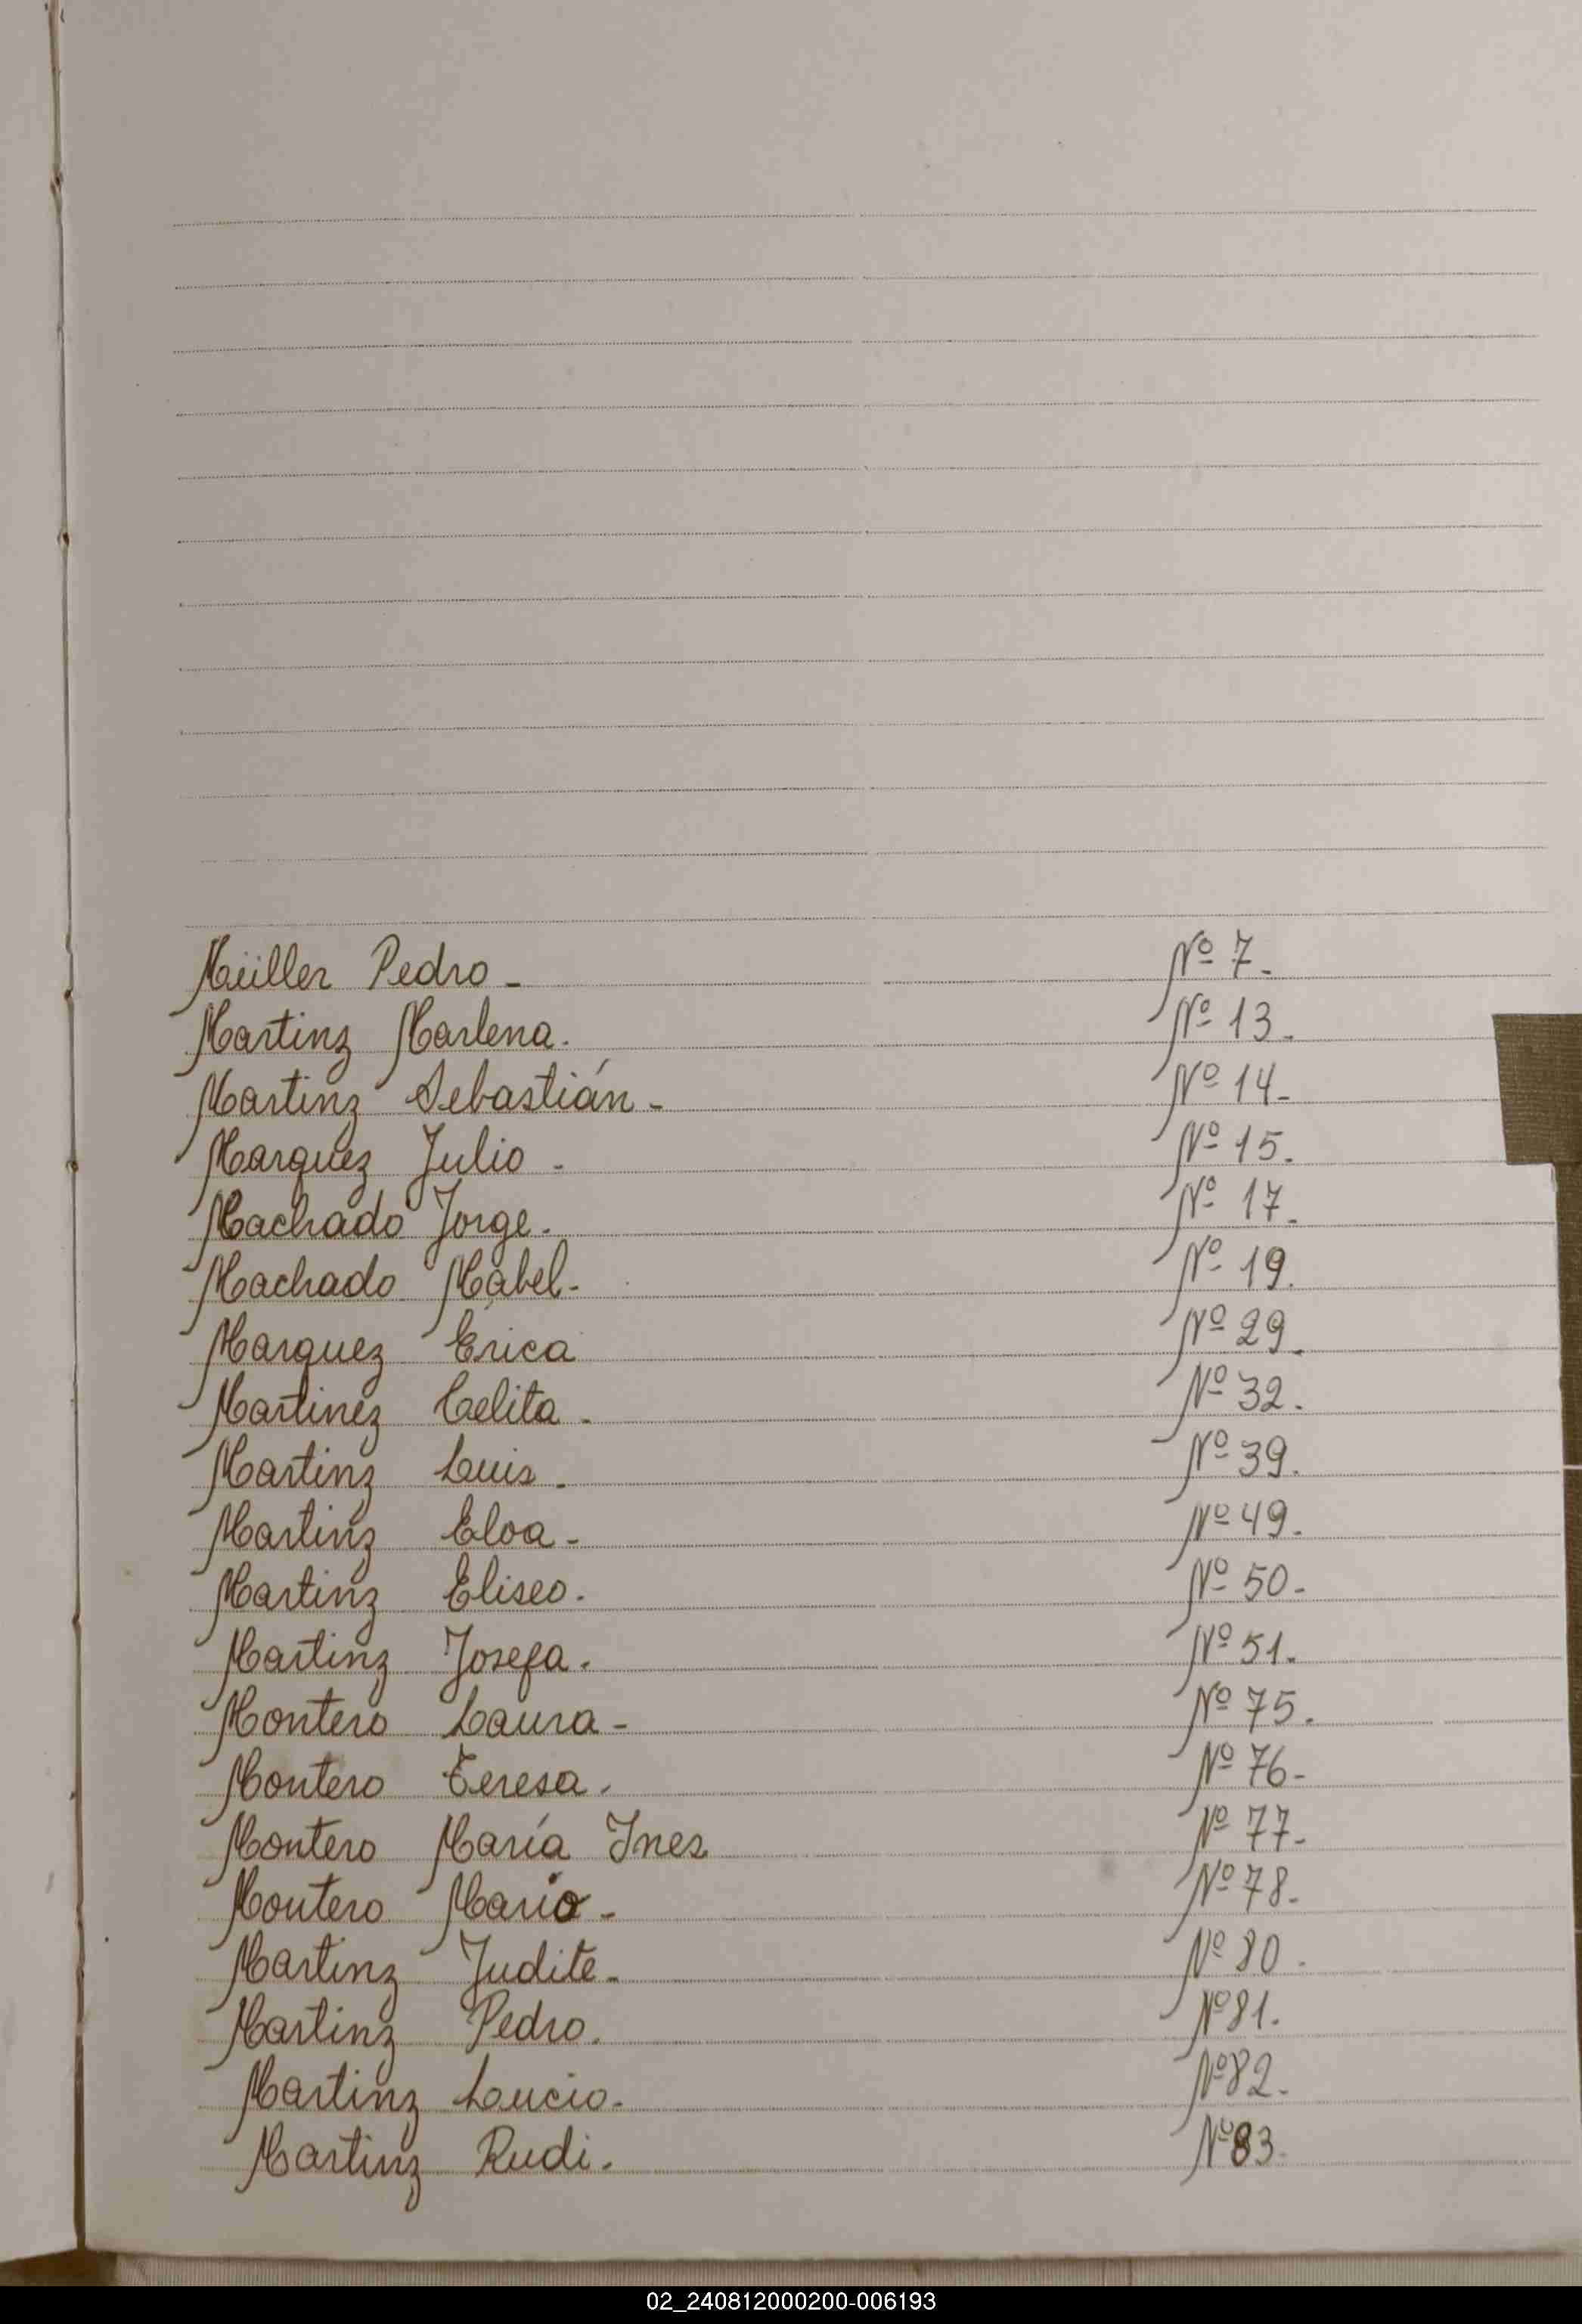 Müller Pedro - Nº 7.
Martinz Marlena. Nº 13.
Martinz Sebastián - Nº 14-
Marquez Julio - Nº 15.
Machado Jorge. Nº 17.
Machado Mabel- Nº 19.
Marquez Erica Nº 29.
Martinez Celita. Nº 32.
Martinz Luis. Nº 39.
Martinz Eloa- Nº 49.
Martinz Eliseo. Nº 50-
Martinz Josefa. Nº 51.
Montero Laura- Nº 75.
Montero Teresa. Nº 76-
Montero María Ines Nº 77-
Montero Mario- Nº 78.
Martinz Judite- Nº 80.
Martinz Pedro. Nº 81.
Martinz Lucio. Nº 82.
Martinz Rudi. Nº 83.
02_240812000200-006193